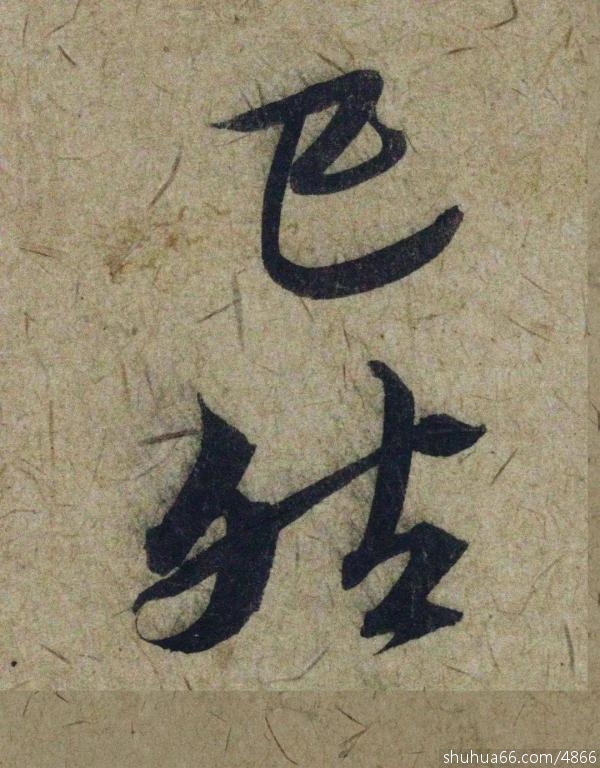 已
結
shuhua66.com/4866